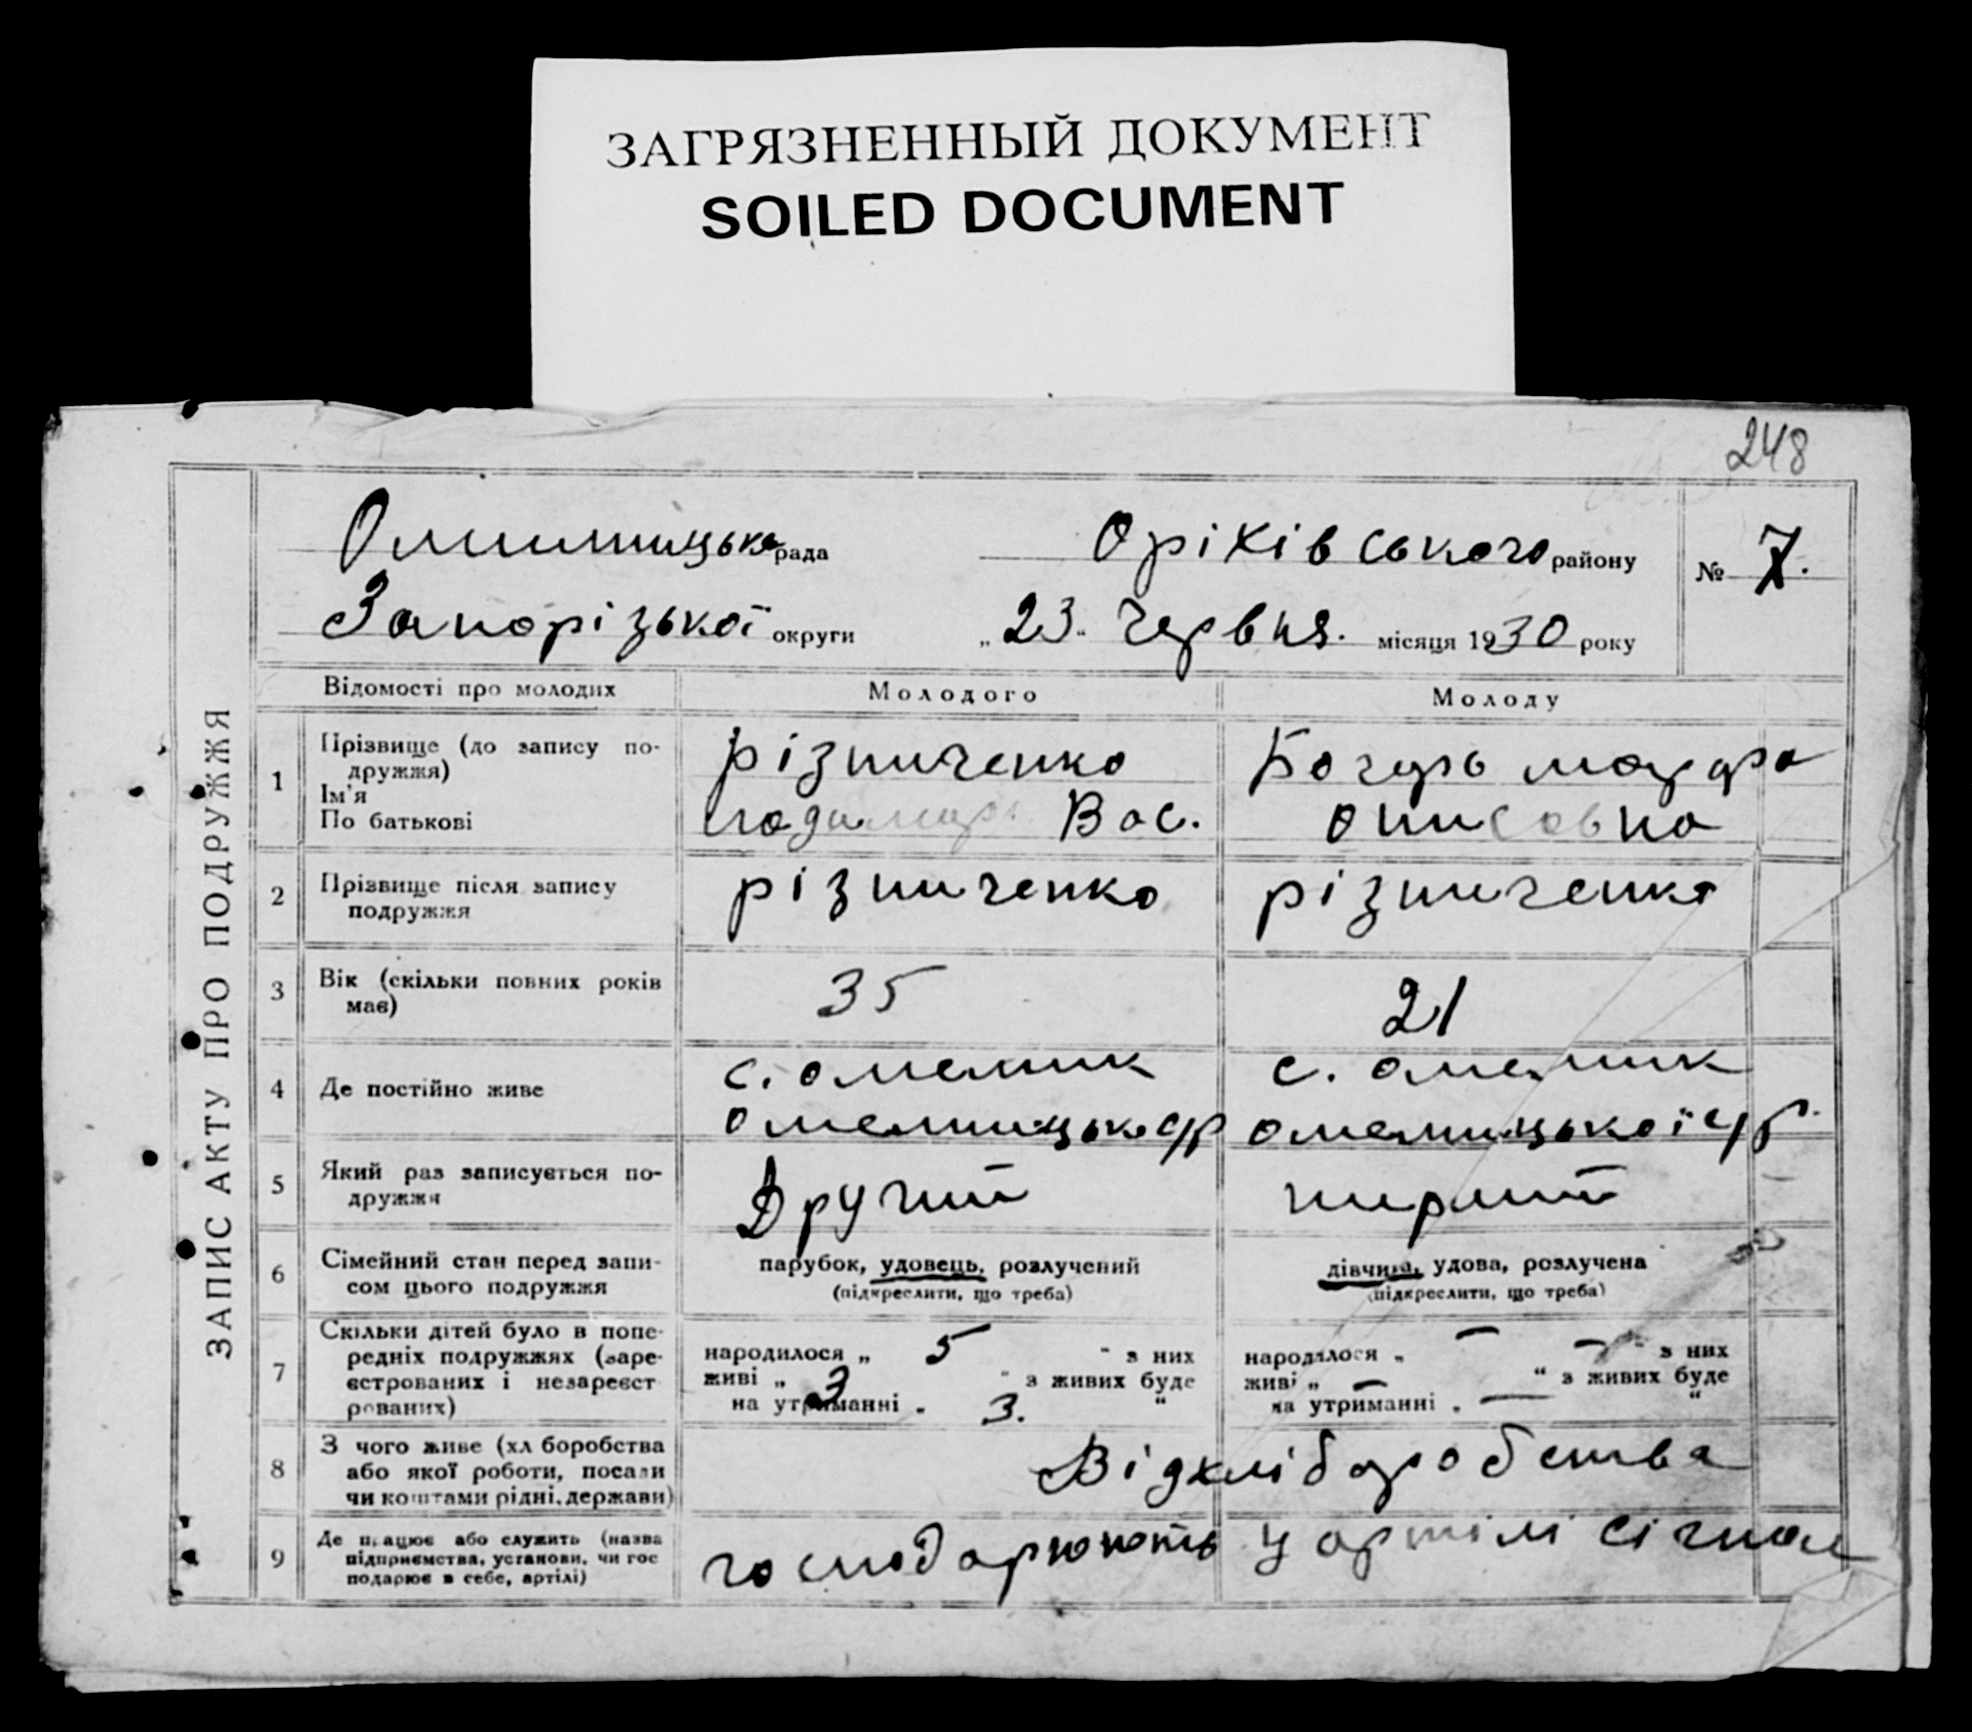 ЗАГРЯЗНЕННЫЙ ДОКУМЕНТ
SOILED DOCUMENT
248
ЗАПИС АКТУ ПРО ПОДРУЖЖЯ
рада Оріхівського району № 7.
Запорізької округи „ 23 " Червня. місяця 1930 року
Відомості про молодих Молодого Молоду
1 Прізвище (до запису по-
дружжя)
Ім'я
По батькові
різниченко
Вас.
2 Прізвище після запису
подружжя
різниченко
різниченко
3 Вік (скільки повних років
має)
35
21
4 Де постійно живе
с. омелник
с. омелник
омелницької с/р.
5 Який раз записується по-
дружжя
Другий
перший
6 Сімейний стан перед запи-
сом цього подружжя
парубок, удовець, розлучений
(підкреслити, що треба)
дівчина, удова, розлучена
(підкреслити, що треба)
7 Скільки дітей було в попе-
редніх подружжях (заре-
єстрованих і незареєст
рованих)
народилося „ 5 " з них
живі „ 3 " з живих буде
на утриманні „ 3. "
народилося „ — — " з них
живі „ — " з живих буде
на утриманні „ — "
8 З чого живе (хліборобства
або якої роботи, посади
чи коштами рідні, держави)
Від хліборобства
9 Де працює або служить (назва
підприємства, установи, чи гос
подарює в себе, артілі)
господарюють у артілі сігнал